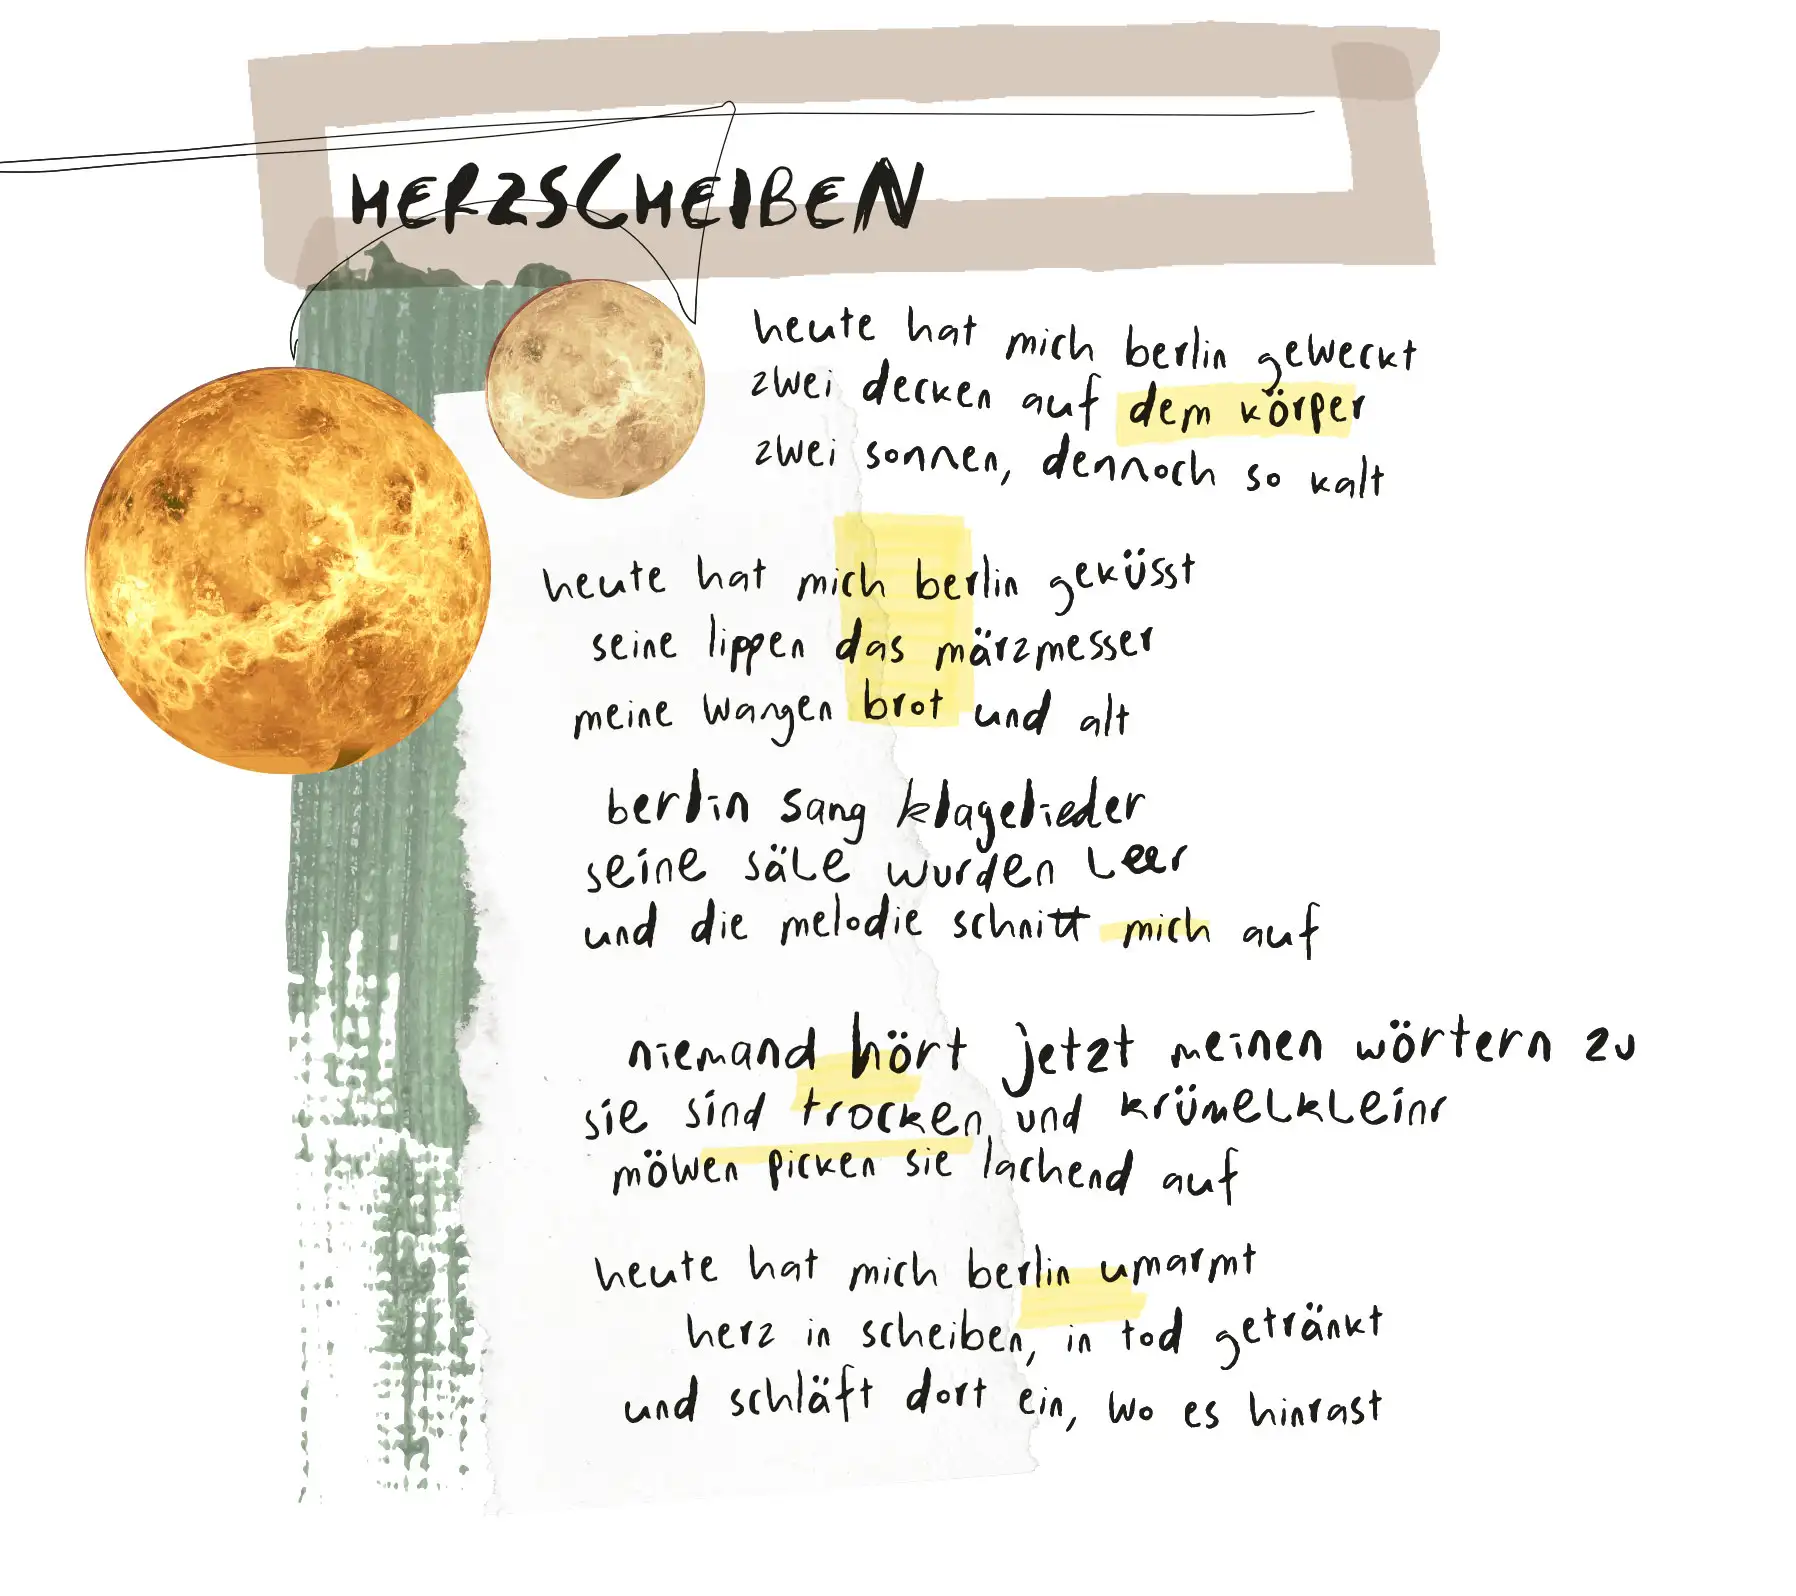 HERZSCHEIBEN
heute hat mich berlin geweckt
zwei decken auf dem körper
zwei sonnen, dennoch so kalt
heute hat mich berlin geküsst
seine lippen das märzmesser
meine wangen brot und alt
berlin sang klagelieder
seine säle wurden leer
und die melodie schnitt mich auf
niemand hört jetzt meinen wörtern zu
sie sind trocken und krümelklein
möwen picken sie lachend auf
heute hat mich berlin umarmt
herz in scheiben, in tod getränkt
und schläft dort ein, wo es hinrast